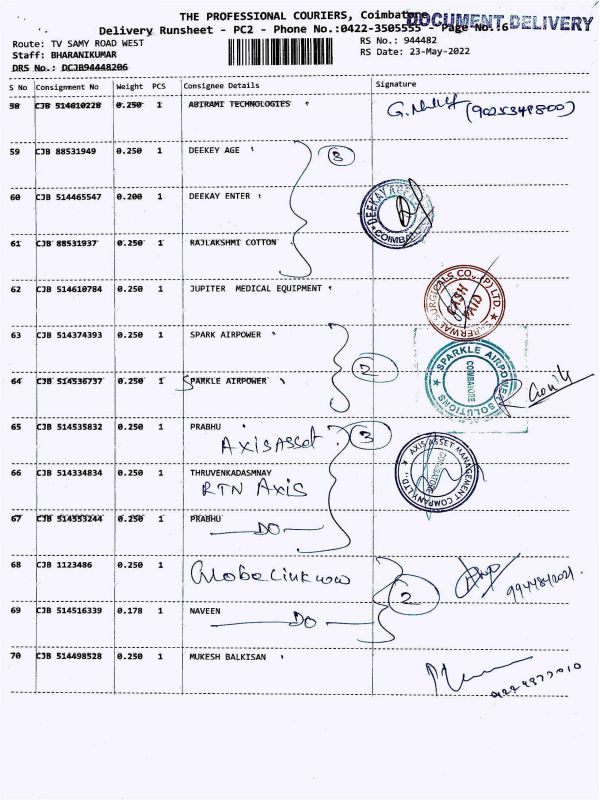 THE PROFESSIONAL COURIERS, Coimbatore
DOCUMENT DELIVERY
Delivery Runsheet - PC2 - Phone No.:0422-3505555 - Page No.:6
Route: TV SAMY ROAD WEST
RS No.: 944482
Staff: BHARANIKUMAR
RS Date: 23-May-2022
DRS No.: DCJB94448206
S No Consignment No Weight PCS Consignee Details Signature
58 CJB 514610228 0.250 1 ABIRAMI TECHNOLOGIES
(9025349800)
59 CJB 88531949 0.250 1 DEEKEY AGE
3
60 CJB 514465547 0.200 1 DEEKAY ENTER
DEEKAY
COIMBATORE
61 CJB 88531937 0.250 1 RAJLAKSHMI COTTON
62 CJB 514610784 0.250 1 JUPITER MEDICAL EQUIPMENT
SURGICALS CO., (P) LTD.
CASH PAID
63 CJB 514374393 0.250 1 SPARK AIRPOWER
2
SPARKLE AIRPOWER SOLUTIONS
COIMBATORE
64 CJB 514536737 0.250 1 SPARKLE AIRPOWER
65 CJB 514535832 0.250 1 PRABHU
Axis Asset
3
AXIS ASSET MANAGEMENT COMPANY LTD.
COIMBATORE
66 CJB 514334834 0.250 1 THRUVENKADASMNAY
RTN Axis
67 CJB 514553244 0.250 1 PRABHU
DO
68 CJB 1123486 0.250 1
2
69 CJB 514516339 0.178 1 NAVEEN
DO
70 CJB 514498528 0.250 1 MUKESH BALKISAN